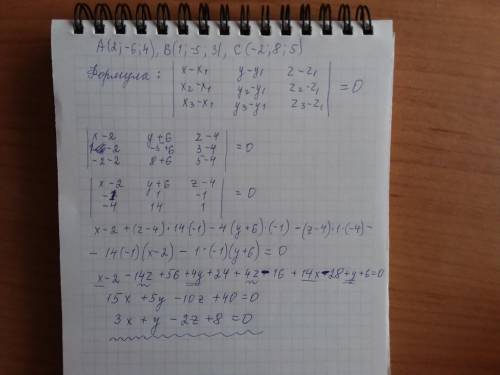 A(2;-6;4), B(1;-5;3), C(-2;8;5)
Формула: | x-x₁ y-y₁ z-z₁ |
| x₂-x₁ y₂-y₁ z₂-z₁ | =0
| x₃-x₁ y₃-y₁ z₃-z₁ |
| x-2 y+6 z-4 |
| 1-2 -5+6 3-4 | =0
| -2-2 8+6 5-4 |
| x-2 y+6 z-4 |
| -1 1 -1 | =0
| -4 14 1 |
x-2+(z-4)·14(-1)-4(y+6)·(-1)-(z-4)·1·(-4)-
-14(-1)(x-2)-1·(-1)(y+6)=0
x-2-14z+56+4y+24+4z-16+14x-28+y+6=0
15x+5y-10z+40=0
3x+y-2z+8=0